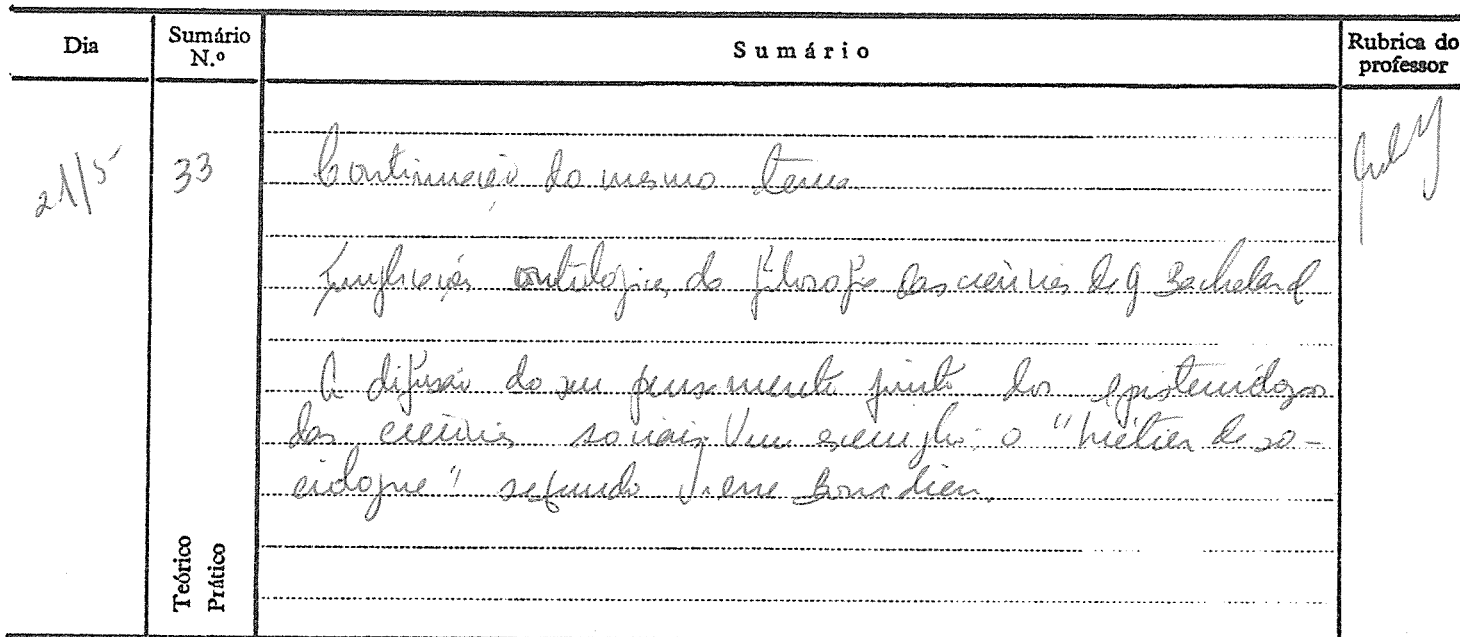 Dia
Sumário N.º
Sumário
Rubrica do professor
21/5
33
Continuação do mesmo tema
Implicações ontológicas da filosofia das ciências de G Bachelard
A difusão do seu pensamento junto dos epistemólogos
das ciências sociais. Um exemplo: o "métier de so-
ciologue" segundo Pierre Bourdieu.
Teórico
Prático